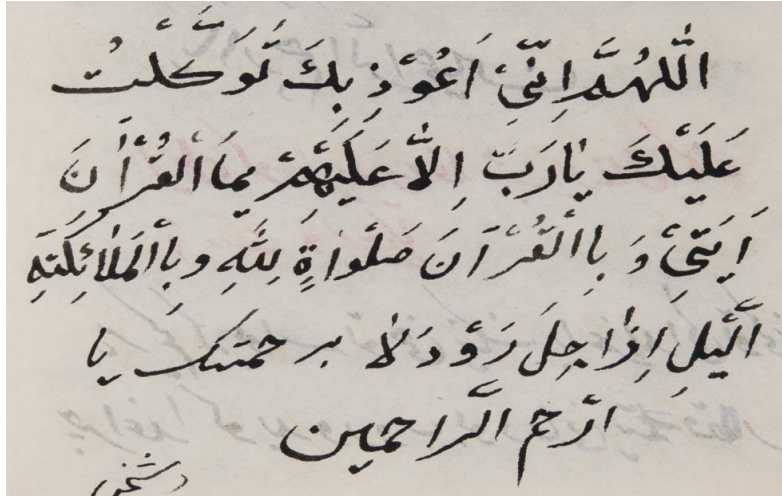 اَللّٰهُمَّ اِنِّىْ اَعُوْذِ بِكَ تَوَكَّلْتُ
عَلَيْكَ يٰارَبِّ اِلاّٰ عَلَيْهِمْ بِمَا الْقُرْاٰنَ
وَ بِاالْقُرْآنَ صَلَوٰاةٍ لِلّٰهِ وَبِاالْمَلٰائِكَتِهِ
الَّيْلِ اِذٰا برحمتك يا
ارْحم الَّراحمين